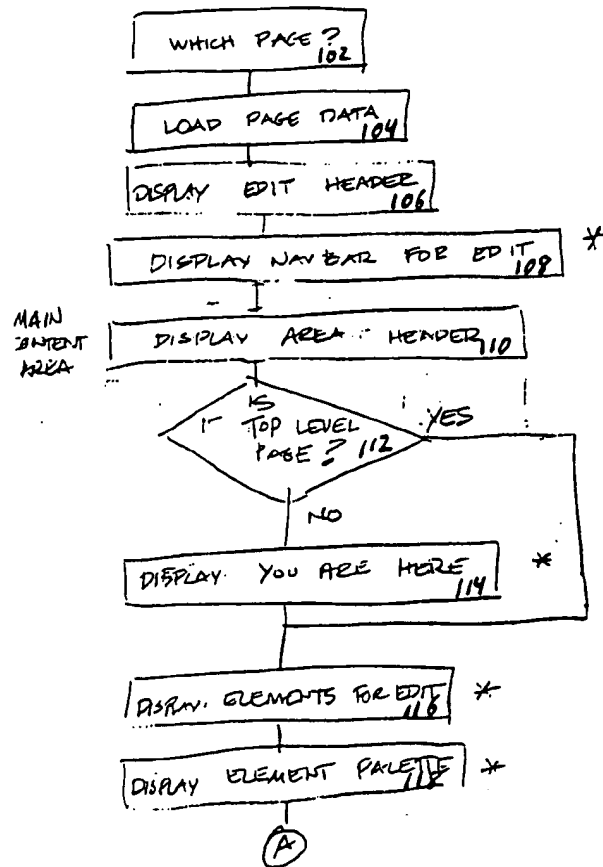 WHICH PAGE?
102
LOAD PAGE DATA
104
DISPLAY EDIT HEADER
106
DISPLAY NAVBAR FOR EDIT *
108
MAIN
CONTENT
AREA
DISPLAY AREA HEADER
110
IS
TOP LEVEL
PAGE? 112
YES
NO
DISPLAY YOU ARE HERE *
114
DISPLAY ELEMENTS FOR EDIT *
116
DISPLAY ELEMENT PALETTE *
118
A